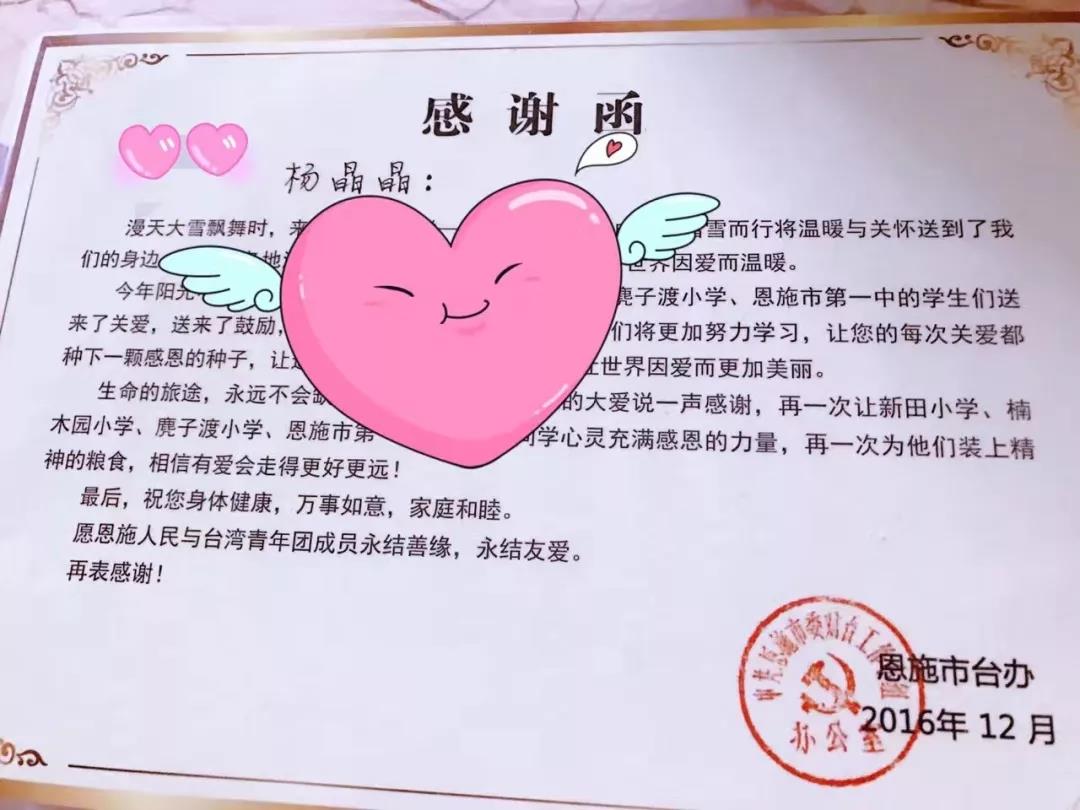 感谢函
杨晶晶：
漫天大雪飘舞时，来 雪而行将温暖与关怀送到了我
们的身边 世界因爱而温暖。
今年阳光 麂子渡小学、恩施市第一中的学生们送
来了关爱，送来了鼓励， 们将更加努力学习，让您的每次关爱都
种下一颗感恩的种子，让 世界因爱而更加美丽。
生命的旅途，永远不会 的大爱说一声感谢，再一次让新田小学、楠
木园小学、麂子渡小学、恩施市第一 同学心灵充满感恩的力量，再一次为他们装上精
神的粮食，相信有爱会走得更好更远！
最后，祝您身体健康，万事如意，家庭和睦。
愿恩施人民与台湾青年团成员永结善缘，永结友爱。
再表感谢！
中共恩施市委对台工作
办公室
恩施市台办
2016年 12 月